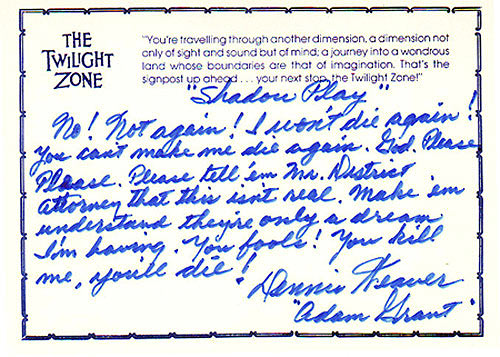 THE
TWILIGHT
ZONE
"You're travelling through another dimension, a dimension not
only of sight and sound but of mind; a journey into a wondrous
land whose boundaries are that of imagination. That's the
signpost up ahead . . . your next stop, the Twilight Zone!"
"Shadow Play"
No! Not again! I won't die again!
You can't make me die again. God. Please
Please. Please tell 'em Mr. District
Attorney that this isn't real. Make 'em
understand they're only a dream
I'm having. You fools! You kill
me, you'll die!
Dennis Weaver
"Adam Grant"